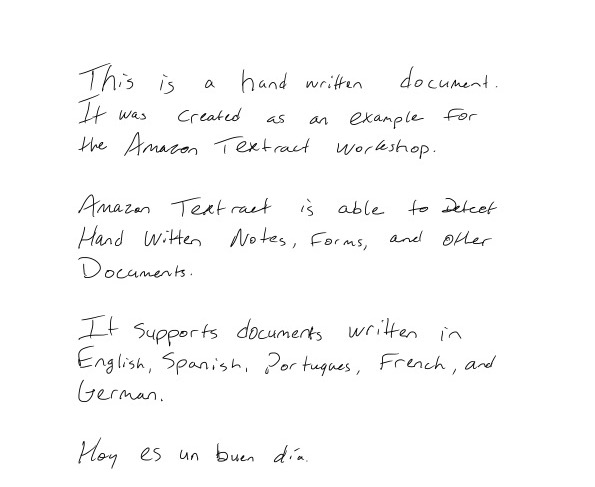 This is a hand written document.
It was created as an example for
the Amazon Textract workshop.
Amazon Textract is able to Detect
Hand Written Notes, Forms, and other
Documents.
It supports documents written in
English, Spanish, Portugues, French, and
German.
Hoy es un buen día.